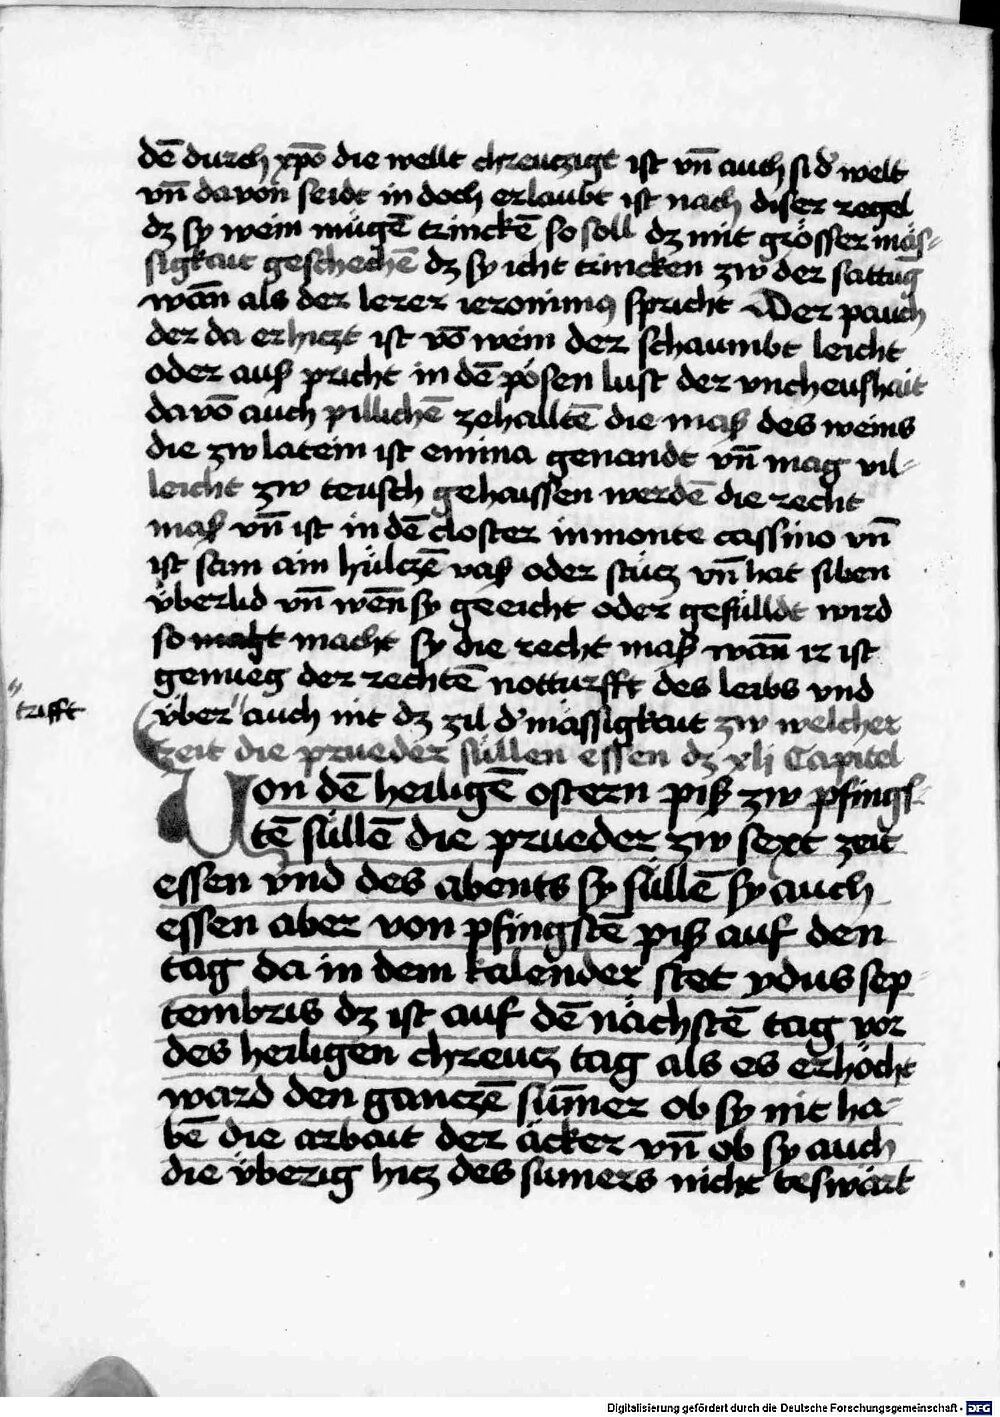 dē durch xpō die wellt chreuczigt ist vn̄ auch si d' welt
vn̄ davon seidt in doch erlaubt ist nach diser regel
dz sy wein mügē trinckē so soll dz mit grösser mäs-
sigkait geschechē dz sy icht trincken zw der sattūg
wān als der lerer ieronimus spricht Der pauch
der da erhiczt ist vō wein der schaumbt leicht
oder auß pricht in dē pösen lust der vncheushait
davō auch pillichē zehalltē die maß des weins
die zw latein ist emina genandt vn̄ mag vil-
leicht zw teusch gehaissen werdē die recht
maß vn̄ ist in dē closter in monte cassino vn̄
ist sam ain hülczē vaß oder stücz vn̄ hat siben
überlid vn̄ wēn sy geeicht oder gefülldt wird
so macht sy die recht maß wān ir ist
genueg der rechtē notturfft des leibs vnd
über" auch nit dz zil d' mässigkait zw welcher
"
trifft
zeit die prueder süllen essen dz xli Capitel
Von dē heiligē ostern piß zw pfings-
tē süllē die prueder zw sext zeit
essen vnd des abents sy süllē sy auch
essen aber von pfingstē piß auf den
tag da in dem kalender stet ydus sep-
tembris dz ist auf dē nächstē tag vor
des heiligen chreucz tag als es erhöcht
ward den ganczē sūmer ob sy nit ha-
bē die arbait der äcker vn̄ ob sy auch
die überig hicz des sumers nicht beswärt
Digitalisierung gefördert durch die Deutsche Forschungsgemeinschaft - DFG